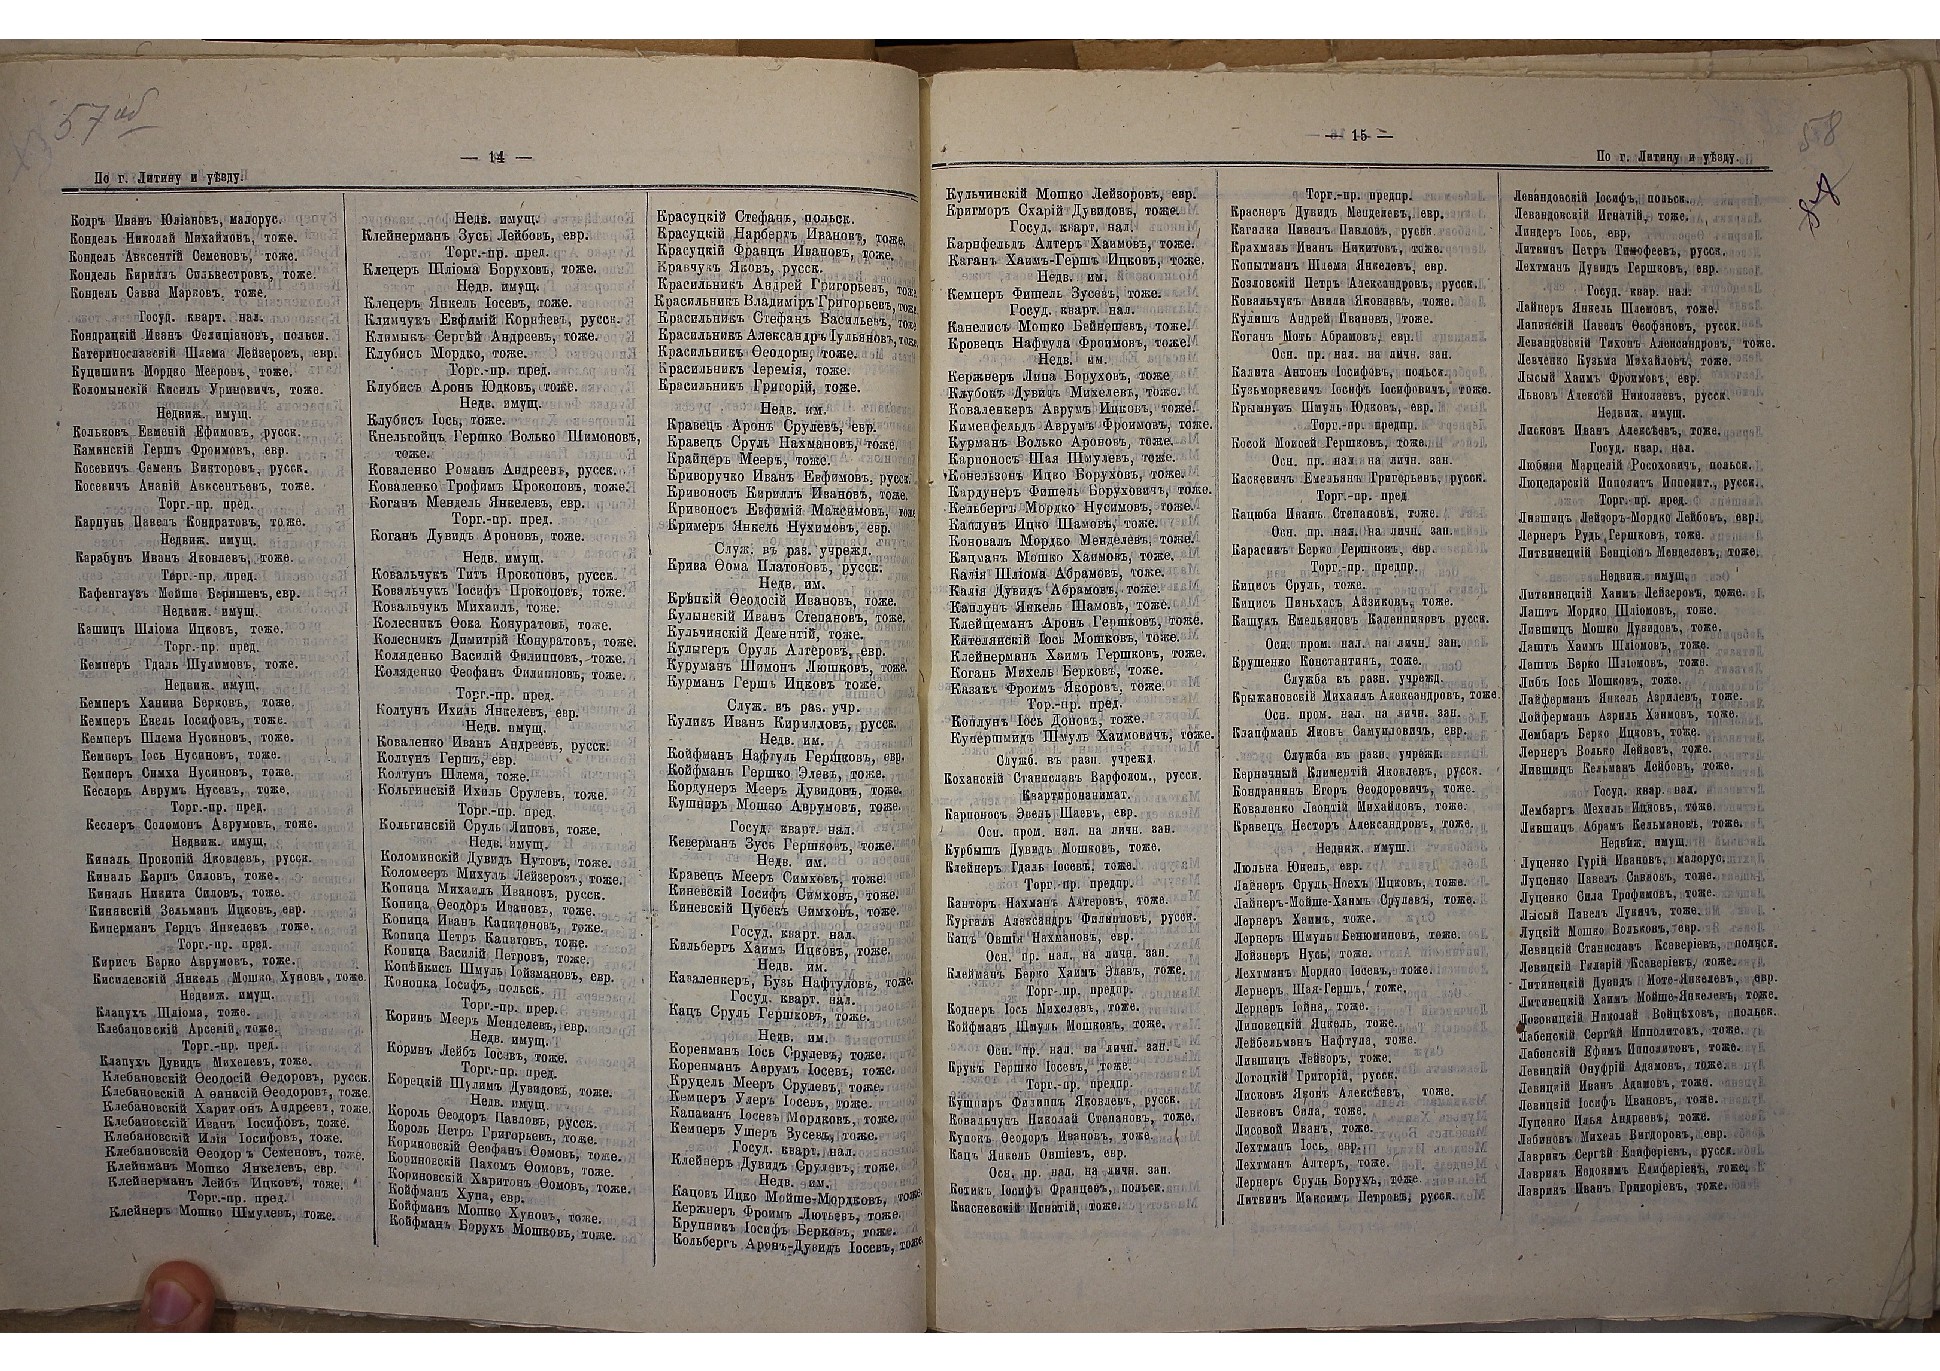 57 об
— 14 —
По г. Литину и уѣзду.
Кодръ Иванъ Юліановъ, малорус.
Кондель Николай Михайловъ, тоже.
Кондель Авксентій Семеновъ, тоже.
Кондель Кириллъ Сильвестровъ, тоже.
Кондель Савва Марковъ, тоже.
Госуд. кварт. нал.
Кондрацкій Иванъ Фелиціановъ, польск.
Катеринославскій Шлема Лейзеровъ, евр.
Куцешинъ Мордко Мееровъ, тоже.
Коломынскій Кисиль Уриновичъ, тоже.
Недвиж. имущ.
Кольковъ Евменій Ефимовъ, русск.
Каминскій Гершъ Фроимовъ, евр.
Косевичъ Семенъ Викторовъ, русск.
Косевичъ Ананій Авксентьевъ, тоже.
Торг.-пр. пред.
Карпунь Павелъ Кондратовъ, тоже.
Недвиж. имущ.
Карабунъ Иванъ Яковлевъ, тоже.
Торг.-пр. пред.
Кафенгаузъ Мойше Беришевъ, евр.
Недвиж. имущ.
Кашицъ Шліома Ицковъ, тоже.
Торг.-пр. пред.
Кемперъ Гдаль Шулимовъ, тоже.
Недвиж. имущ.
Кемперъ Ханина Берковъ, тоже.
Кемперъ Евель Іосифовъ, тоже.
Кемперъ Шлема Нусиновъ, тоже.
Кемперъ Іось Нусиновъ, тоже.
Кемперъ Симха Нусиновъ, тоже.
Кеслеръ Аврумъ Нусевъ, тоже.
Торг.-пр. пред.
Кеслеръ Соломонъ Аврумовъ, тоже.
Недвиж. имущ.
Киналь Прокопій Яковлевъ, русск.
Киналь Карпъ Силовъ, тоже.
Киналь Никита Силовъ, тоже.
Киневскій Зельманъ Ицковъ, евр.
Киперманъ Герцъ Янкелевъ тоже.
Торг.-пр. пред.
Кирисъ Берко Аврумовъ, тоже.
Кисилевскій Янкель Мошко Хуновъ, тоже.
Недвиж. имущ.
Клапухъ Шліома, тоже.
Клебановскій Арсеній, тоже.
Торг.-пр. пред.
Клапухъ Дувидъ Михелевъ, тоже.
Клебановскій Ѳеодосій Ѳедоровъ, русск.
Клебановскій Аѳанасій Ѳеодоровъ, тоже.
Клебановскій Харитонъ Андреевъ, тоже.
Клебановскій Иванъ Іосифовъ, тоже.
Клебановскій Илія Іосифовъ, тоже.
Клебановскій Ѳеодоръ Семеновъ, тоже.
Клейнманъ Мошко Янкелевъ, евр.
Клейнерманъ Лейбъ Ицковъ, тоже.
Торг.-пр. пред.
Клейнеръ Мошко Шмулевъ, тоже.
Недв. имущ.
Клейнерманъ Зусь Лейбовъ, евр.
Торг.-пр. пред.
Клецеръ Шліома Боруховъ, тоже.
Недв. имущ.
Клецеръ Янкель Іосевъ, тоже.
Климчукъ Евфимій Корнѣевъ, русск.
Климыкъ Сергѣй Андреевъ, тоже.
Клубисъ Мордко, тоже.
Торг.-пр. пред.
Клубисъ Аронъ Юдковъ, тоже.
Недв. имущ.
Клубисъ Іось, тоже.
Кнельгойцъ Гершко Волько Шимоновъ,
тоже.
Коваленко Романъ Андреевъ, русск.
Коваленко Трофимъ Прокоповъ, тоже.
Коганъ Мендель Янкелевъ, евр.
Торг.-пр. пред.
Коганъ Дувидъ Ароновъ, тоже.
Недв. имущ.
Ковальчукъ Титъ Прокоповъ, русск.
Ковальчукъ Іосифъ Прокоповъ, тоже.
Ковальчукъ Михаилъ, тоже.
Колесникъ Ѳока Конуратовъ, тоже.
Колесникъ Димитрій Конуратовъ, тоже.
Коляденко Василій Филипповъ, тоже.
Коляденко Феофанъ Филипповъ, тоже.
Торг.-пр. пред.
Колтунъ Ихиль Янкелевъ, евр.
Недв. имущ.
Коваленко Иванъ Андреевъ, русск.
Колтунъ Гершъ, евр.
Колтунъ Шлема, тоже.
Кольгинскій Ихиль Срулевъ, тоже.
Торг.-пр. пред.
Кольгинскій Сруль Липовъ, тоже.
Недв. имущ.
Коломинскій Дувидъ Нутовъ, тоже.
Коломееръ Михулъ Лейзеровъ, тоже.
Копица Михаилъ Ивановъ, русск.
Копица Ѳеодоръ Ивановъ, тоже.
Копица Иванъ Капитоновъ, тоже.
Копица Петръ Капитовъ, тоже.
Копица Василій Петровъ, тоже.
Копѣйкисъ Шмуль Іойзмановъ, евр.
Конопка Іосифъ, польск.
Торг.-пр. прер.
Коринъ Мееръ Менделевъ, евр.
Недв. имущ.
Коринъ Лейбъ Іосевъ, тоже.
Торг.-пр. пред.
Корецкій Шулимъ Дувидовъ, тоже.
Недв. имущ.
Король Ѳеодоръ Павловъ, русск.
Король Петръ Григорьевъ, тоже.
Кориновскій Ѳеофанъ Ѳомовъ, тоже.
Кориновскій Пахомъ Ѳомовъ, тоже.
Кориновскій Харитонъ Ѳомовъ, тоже.
Койфманъ Хуна, евр.
Койфманъ Мошко Хуновъ, тоже.
Койфманъ Борухъ Мошковъ, тоже.
Красуцкій Стефанъ, польск.
Красуцкій Нарбертъ Ивановъ, тоже.
Красуцкій Францъ Ивановъ, тоже.
Кравчукъ Яковъ, русск.
Красильникъ Андрей Григорьевъ, тоже
Красильникъ Владиміръ Григорьевъ, тоже
Красильникъ Стефанъ Васильевъ, тоже
Красильникъ Александръ Іульяновъ, тоже.
Красильникъ Ѳеодоръ, тоже.
Красильникъ Іеремія, тоже.
Красильникъ Григорій, тоже.
Недв. им.
Кравецъ Аронъ Срулевъ, евр.
Кравецъ Сруль Нахмановъ, тоже.
Крайцеръ Мееръ, тоже.
Криворучко Иванъ Евфимовъ, русск.
Кривоносъ Кириллъ Ивановъ, тоже.
Кривоносъ Евфимій Максимовъ, тоже
Кримеръ Янкель Нухимовъ, евр.
Служ. въ раз. учрежд.
Крива Ѳома Платоновъ, русск.
Недв. им.
Крѣпкій Ѳеодосій Ивановъ, тоже.
Кулынскій Иванъ Степановъ, тоже.
Кульчинскій Дементій, тоже.
Кулыгеръ Сруль Алтеровъ, евр.
Куруманъ Шимонъ Люшковъ, тоже.
Курманъ Гершъ Ицковъ тоже.
Служ. въ раз. учр.
Куликъ Иванъ Кирилловъ, русск.
Недв. им.
Койфманъ Нафтуль Гершковъ, евр.
Койфманъ Гершко Элевъ, тоже.
Кордунеръ Мееръ Дувидовъ, тоже.
Кушниръ Мошко Аврумовъ, тоже.
Госуд. кварт. нал.
Кеверманъ Зусь Гершковъ, тоже.
Недв. им.
Кравецъ Мееръ Симховъ, тоже.
Киневскій Іосифъ Симховъ, тоже.
Киневскій Цубекъ Симховъ, тоже.
Госуд. кварт. нал.
Кильбергъ Хаимъ Ицковъ, тоже.
Недв. им.
Каваленкеръ, Бузь Нафтуловъ, тоже.
Госуд. кварт. нал.
Кацъ Сруль Гершковъ, тоже.
Недв. им.
Коренманъ Іось Срулевъ, тоже.
Коренманъ Аврумъ Іосевъ, тоже.
Круцель Мееръ Срулевъ, тоже.
Кемперъ Улеръ Іосевъ, тоже.
Капаванъ Іосевъ Мордковъ, тоже.
Кемперъ Ушеръ Зусевъ, тоже.
Госуд. кварт. нал.
Клейнеръ Дувидъ Срулевъ, тоже.
Недв. им.
Кацовъ Ицко Мойше-Мордковъ, тоже.
Кержнеръ Фроимъ Лютьевъ, тоже.
Крупникъ Іосифъ Берковъ, тоже.
Кольбергъ Аронъ-Дувидъ Іосевъ, тоже
58
— 15 —
По г. Литину и уѣзду.
Кульчинскій Мошко Лейзоровъ, евр.
Кригморъ Схарій Дувидовъ, тоже.
Госуд. кварт. нал.
Карнфельдъ Алтеръ Хаимовъ, тоже.
Каганъ Хаимъ-Гершъ Ицковъ, тоже.
Недв. им.
Кемперъ Фишель Зусевъ, тоже.
Госуд. кварт. нал.
Канелисъ Мошко Бейнешевъ, тоже.
Кровецъ Нафтула Фроимовъ, тоже.
Недв. им.
Кержнеръ Липа Боруховъ, тоже
Клубокъ Дувидъ Михелевъ, тоже.
Коваленкеръ Аврумъ Ицковъ, тоже.
Кименфельдъ Аврумъ Фроимовъ, тоже.
Курманъ Волько Ароновъ, тоже.
Карпоносъ Шая Шмулевъ, тоже.
Конельзонъ Ицко Боруховъ, тоже.
Кардунеръ Фишель Боруховичъ, тоже.
Кельбергъ Мордко Нусимовъ, тоже.
Каплунъ Ицко Шамовъ, тоже.
Коновалъ Мордко Менделевъ, тоже.
Кацманъ Мошко Хаимовъ, тоже.
Калія Шліома Абрамовъ, тоже.
Калія Дувидъ Абрамовъ, тоже.
Каплунъ Янкель Шамовъ, тоже.
Клейщеманъ Аронъ Гершковъ, тоже.
Кателянскій Іось Мошковъ, тоже.
Клейнерманъ Хаимъ Гершковъ, тоже.
Когань Михель Берковъ, тоже.
Казакъ Фроимъ Якоровъ, тоже.
Тор.-пр. пред.
Коплунъ Іось Доновъ, тоже.
Купершмидъ Шмуль Хаимовичъ, тоже.
Служб. въ разн. учрежд.
Коханскій Станиславъ Варфолом., русск.
Квартиронанимат.
Карпоносъ Эвель Шаевъ, евр.
Осн. пром. нал. на личн. зан.
Курбышъ Дувидъ Мошковъ, тоже.
Клейнеръ Гдаль Іосевъ, тоже.
Торг.-пр. предпр.
Канторъ Нахманъ Алтеровъ, тоже.
Кургаль Александръ Филипповъ, русск.
Кацъ Овшія Нахмановъ, евр.
Осн. пр. нал. на личн. зан.
Клейманъ Берко Хаимъ Элевъ, тоже.
Торг.-пр. предпр.
Коднеръ Іось Михелевъ, тоже.
Койфманъ Шмуль Мошковъ, тоже.
Осн. пр. нал. на личн. зан.
Крукъ Гершко Іосевъ, тоже.
Торг.-пр. предпр.
Кушниръ Филиппъ Яковлевъ, русск.
Ковальчукъ Николай Степановъ, тоже.
Купокъ Ѳеодоръ Ивановъ, тоже
Кацъ Янкель Овшіевъ, евр.
Осн. пр. нал. на личн. зан.
Котикъ Іосифъ Францевъ, польск.
Квасневскій Игнатій, тоже.
Торг.-пр. предпр.
Краснеръ Дувидъ Менделевъ, евр.
Кагалка Павелъ Павловъ, русск.
Крахмаль Иванъ Никитовъ, тоже.
Копытманъ Шлема Янкелевъ, евр.
Козловскій Петръ Александровъ, русск.
Ковальчукъ Авила Яковлевъ, тоже.
Кулишъ Андрей Ивановъ, тоже.
Коганъ Моть Абрамовъ, евр.
Осн. пр. нал. на личн. зан.
Калита Антонъ Іосифовъ, польск.
Кузьморкевичъ Іосифъ Іосифовичъ, тоже.
Крымнукъ Шмуль Юдковъ, евр.
Торг.-пр. предпр.
Косой Моисей Гершковъ, тоже.
Осн. пр. нал. на личн. зан.
Каскевичъ Емельянъ Григорьевъ, русск.
Торг.-пр. пред
Кацюба Иванъ Степановъ, тоже.
Осн. пр. нал. на личн. зан.
Карасикъ Берко Гершковъ, евр.
Торг.-пр. предпр.
Кицисъ Сруль, тоже.
Кицисъ Пиньхасъ Айзиковъ, тоже.
Кащукъ Емельяновъ Каленниковъ русск.
Осн. пром. нал. на личн. зан.
Крушенко Константинъ, тоже.
Служба въ разн. учрежд.
Крыжановскій Михаилъ Александровъ, тоже
Осн. пром. нал. на личн. зан.
Клапфманъ Яковъ Самуиловичъ, евр.
Служба въ разн. учрежд.
Керничный Климентій Яковлевъ, русск.
Кондранинъ Егоръ Ѳеодоровичъ, тоже.
Коваленко Леонтій Михайловъ, тоже.
Кравецъ Несторъ Александровъ, тоже.
Недвиж. имущ.
Люлька Юкель, евр.
Лайнеръ Сруль-Ноехъ Ицковъ, тоже.
Лайнеръ-Мойше-Хаимъ Срулевъ, тоже.
Лернеръ Хаимъ, тоже.
Лернеръ Шмуль Бенюминовъ, тоже.
Лойзнеръ Нусь, тоже.
Лехтманъ Мордко Іосевъ, тоже.
Лернеръ Шая-Гершъ, тоже.
Лернеръ Іойна, тоже.
Липовецкій Янкель, тоже.
Лейбельманъ Нафтула, тоже.
Лившицъ Лейзоръ, тоже.
Лотоцкій Григорій, русск.
Лисковъ Яконъ Алексѣевъ, тоже.
Левковъ Сила, тоже.
Лисовой Иванъ, тоже.
Лехтманъ Іось, евр.
Лехтманъ Алтеръ, тоже.
Лернеръ Сруль Борухъ, тоже
Литвинъ Максимъ Петровъ, русск.
Левандовскій Іосифъ, польск.
Левандовскій Игнатій, тоже.
Линдеръ Іось, евр,
Литвинъ Петръ Тимофеевъ, русск.
Лехтманъ Дувидъ Гершковъ, евр.
Госуд. квар. нал.
Лайнеръ Янкель Шлемовъ, тоже.
Лапинскій Павелъ Ѳеофановъ, русск.
Левандовскій Тихонъ Александровъ, тоже.
Левченко Кузьма Михайловъ, тоже.
Лысый Хаимъ Фроимовъ, евр.
Львовъ Алексѣй Николаевъ, русск.
Недвиж. имущ.
Лисковъ Иванъ Алексѣевъ, тоже.
Госуд. квар. нал.
Любини Марцелій Росоховичъ, польск.
Люцедарскій Ипполитъ Ипполат., русск.
Торг.-пр. пред.
Лившицъ Лейзоръ-Мордко Лейбовъ, евр.
Лернеръ Рудь Гершковъ, тоже.
Литвинецкій Бенціонъ Менделевъ, тоже.
Недвиж. имущ.
Литвинецкій Хаимъ Лейзеровъ, тоже.
Лаштъ Мордко Шліомовъ, тоже.
Лившицъ Мошко Дувидовъ, тоже.
Лаштъ Хаимъ Шліомовъ, тоже.
Лаштъ Берко Шліомовъ, тоже.
Либъ Іось Мошковъ, тоже.
Лайферманъ Янкель Азрилевъ, тоже.
Лойферманъ Азриль Хаимовъ, тоже.
Лембаръ Берко Ицковъ, тоже.
Лернеръ Волько Лейзовъ, тоже.
Лившицъ Кельманъ Лейбовъ, тоже.
Госуд. квар. нал.
Лембаргъ Мехиль Ицковъ, тоже.
Лившицъ Абрамъ Кельмановъ, тоже.
Недвиж. имущ.
Луценко Гурій Ивановъ, малорус.
Луценко Павелъ Саввовъ, тоже.
Луценко Сила Трофимовъ, тоже.
Лысый Павелъ Лукичъ, тоже.
Луцкій Мошко Вольковъ, евр.
Левицкій Станиславъ Ксаверіевъ, польск.
Левицкій Гиларій Ксаверіевъ, тоже.
Литинецкій Дувидъ Моте-Янкелевъ, евр.
Литинецкій Хаимъ Мойше-Янкелевъ, тоже.
Лозовицкій Николай Войцѣховъ, польск.
Лабенскій Сергѣй Ипполитовъ, тоже.
Лабенскій Ефимъ Ипполитовъ, тоже.
Левицкій Онуфрій Адамовъ, тоже.
Левицкій Иванъ Адамовъ, тоже.
Левицкій Іосифъ Ивановъ, тоже.
Луценко Илья Андреевъ, тоже.
Лабиновъ Михель Вигдоровъ, евр.
Лаврикъ Сергѣй Елиферіевъ, русск.
Лаврикъ Евдокимъ Елиферіевъ, тоже.
Лаврикъ Иванъ Григоріевъ, тоже.